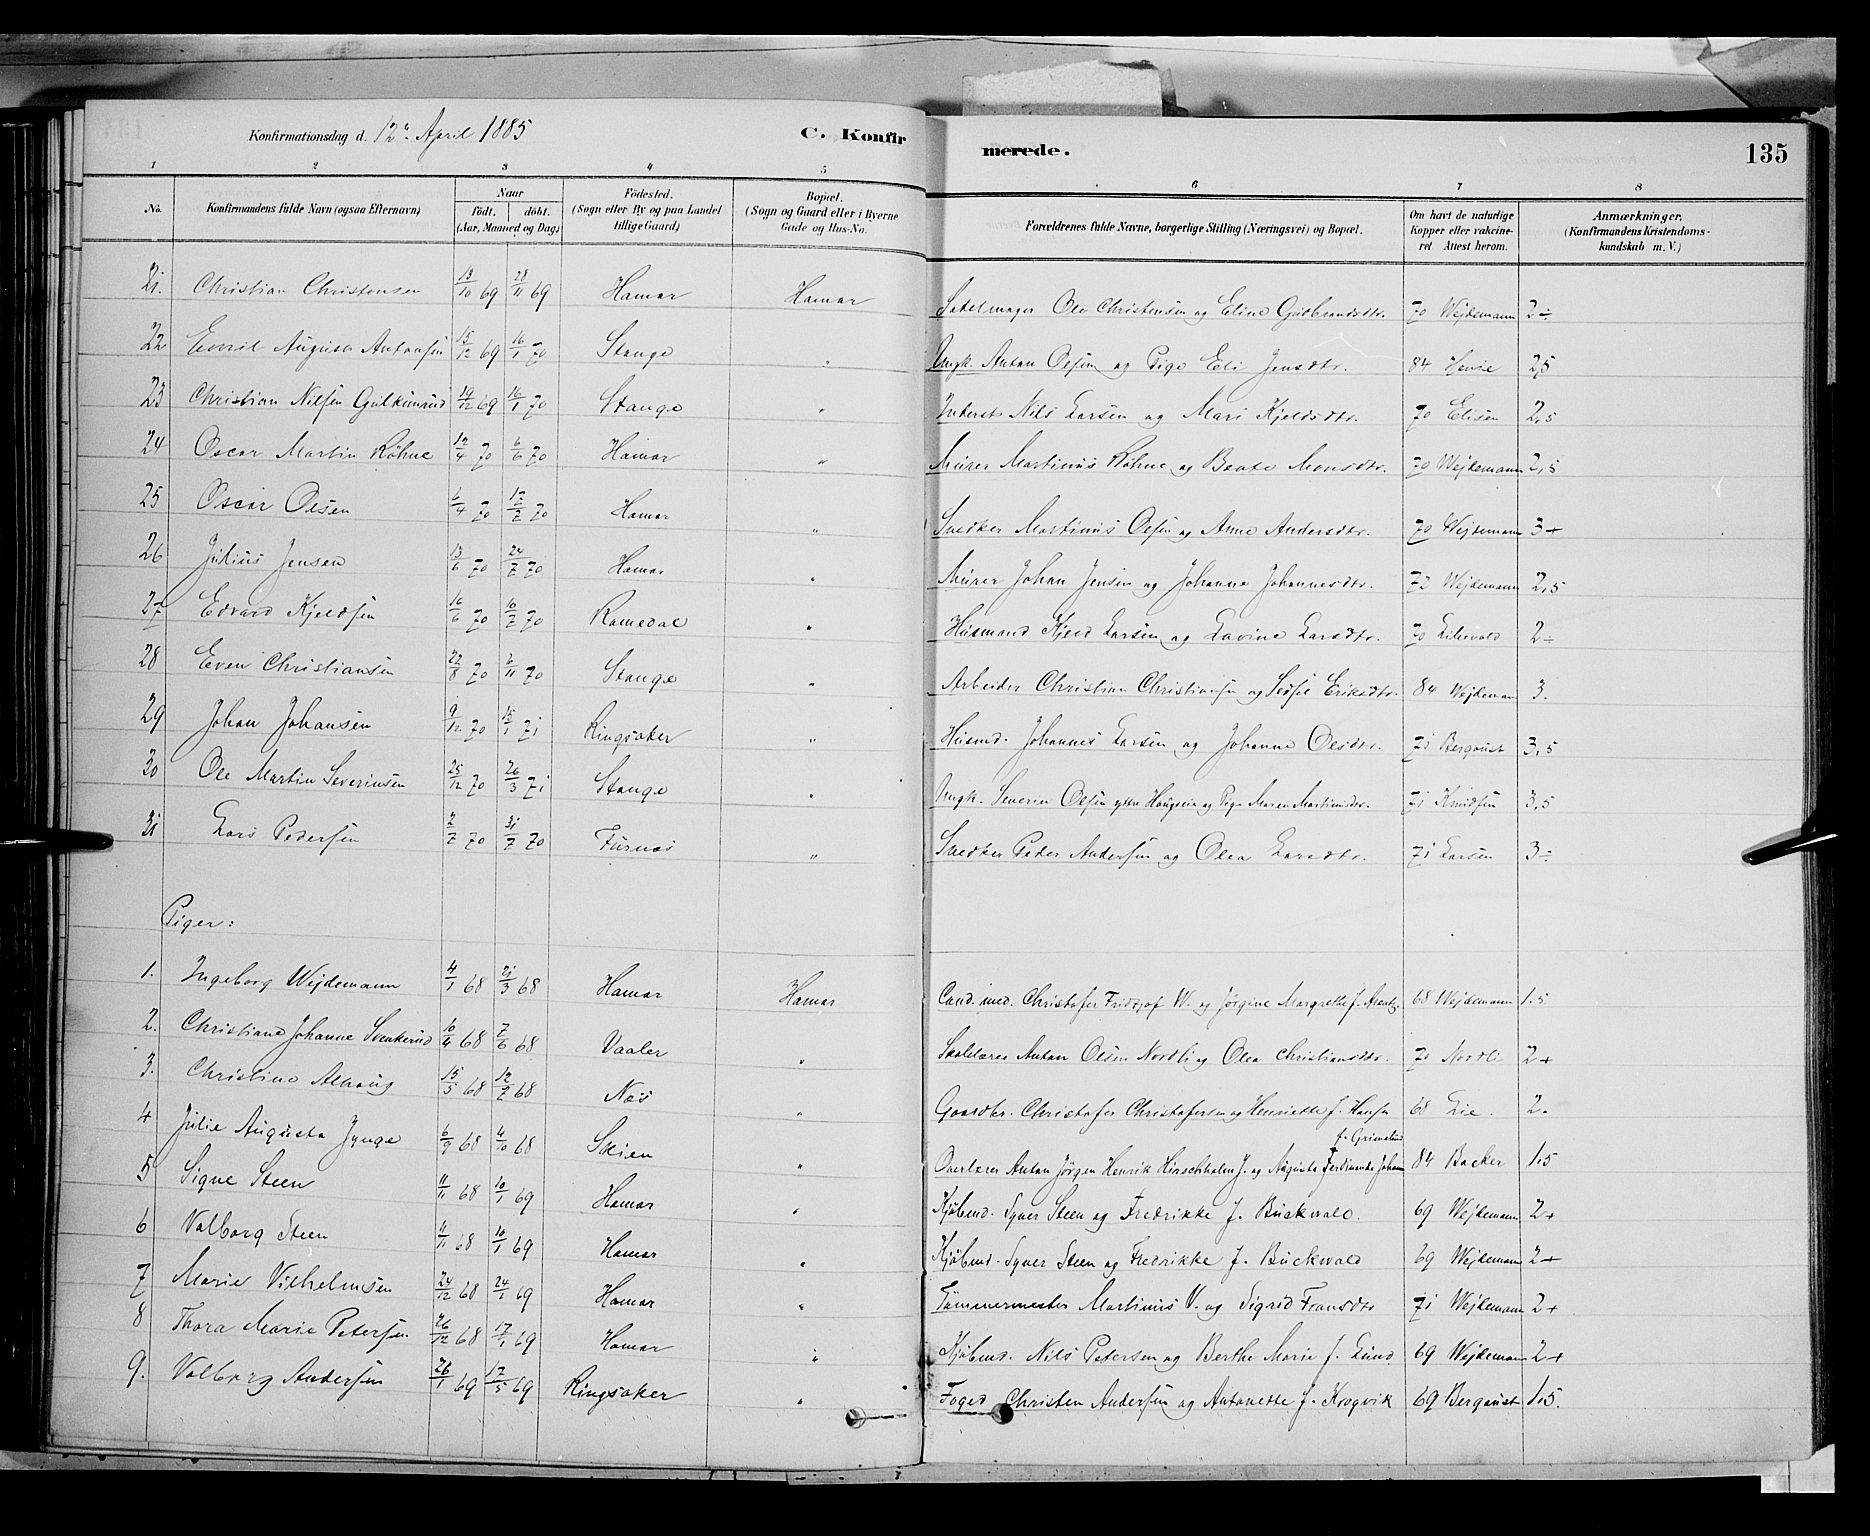 Konfirmationsdag d. 12te April 1885 C. Konfirmerede. 135
1 2 3 4 5 6 7 8
No. Konfirmandens fulde Navn (ogsaa Efternavn) Naar født. døbt. (Aar, Maaned og Dag) Fødested. (Sogn eller By og paa Landet tillige Gaard) Bopæl. (Sogn og Gaard eller i Byerne Gade og Hus-No. Forældrenes fulde Navne, borgerlige Stilling (Næringsvei) og Bopæl. Om havt de naturlige Kopper eller vakcineret Attest herom. Anmærkninger. (Konfirmandens Kristendomskundskab m. V.)
21. Christian Christensen 13/10 69 28/11 69 Hamar Hamar Sadelmager Ole Christensen og Eline Gulbrandsdtr. 70 Wejdemann 2÷
22 August Antonsen 15/12 69 16/1 70 Stange " Ungk. Anton Olsen og Pige Eli Jensdtr. 84 2,5
23 Christian Nilsen 14/12 69 16/1 70 Stange " Inderst Nils Larsen og Mari Kjeldsdtr. 70 Elisen 2,5
24 Oscar Martin Røhne 12/4 70 6/6 70 Hamar " Murer Martinus Røhne og Beate Monsdtr. 70 Wejdemann 2,5
25 Oscar Olsen 6/4 70 17/7 70 Hamar " Snedker Martinus Olsen og Anne Andersdtr. 70 Wejdemann 3+
26 Julius Jensen 13/6 70 24/7 70 Hamar " Murer Johan Jensen og Johanne Johannesdtr. 72 Wejdemann 2,5
27 Edvard Kjeldsen 16/6 70 10/7 70 Romedal " Husmand Kjeld Larsen og Lavine Larsdtr. 70 2÷
28 Even Christiansen 22/8 70 6/11 70 Stange " Arbeider Christian Christiansen og Sofie Eriksdtr. 84 Wejdeman 3.
29 Johan Johansen 9/12 70 15/1 71 Ringsaker " Husmd. Johannes Larsen og Johanne Olsdtr. 71 Berqvist 3,5
30 Ole Martin Severinsen 25/12 70 26/3 71 Stange " Ungk. Severin Olsen og Pige Maren Martinsdtr. 71 Knudsen 3,5
31 Lars Pedersen 2/7 70 31/7 70 Furnæs " Snedker Peder Andersen og Olea Larsdtr. 71 Larsen 3÷
Piger:
1. Ingeborg Wejdemann 4/1 68 21/3 68 Hamar Hamar Cand. med. Christofer Fridtjof W. og Jørgine Margrethe f. 68 Wejdemann 1.5
2. Christiane Johanne Svenkerud 10/4 68 7/6 68 Vaaler " Skolelærer Anton Olsen Nordli og Olea Christiansdtr. 70 Nordli 2+
3. Christine Alhaug 15/5 68 12/7 68 Næs " Gaardbr. Christofer Christofersen og Henriette f. Hansen 68 Lie. 2.
4 Julie Augusta Jynge 6/9 68 4/10 68 Skien " Overlærer Anton Jørgen Henrik Hirschholm J. og Augusta Ferdinande Johanne f. Grimelund 84 Backer 1.5
5 Signe Steen 11/11 68 10/1 69 Hamar " Kjøbmd. Syver Steen og Fredrikke f. Buckwald. 69 Wejdemann 2+
6 Valborg Steen 11/11 68 10/1 69 Hamar " Kjøbmd. Syver Steen og Fredrikke f. Buckwald 69 Wejdemann 2+
7 Marie Vilhelmsen 24/12 68 24/1 69 Hamar " Tømmermester Martinus V. og Sigrid Fransdtr 71 Wejdemann 2+
8 Thora Marie Petersen 26/12 68 17/1 69 Hamar " Kjøbmd. Nils Petersen og Berthe Marie f. Lund 69 Wejdemann 2+
9. Valborg Andersen 26/1 69 17/5 69 Ringsaker " Foged Christen Andersen og Antonette f. Krogvik 69 Berqvist 1,5.